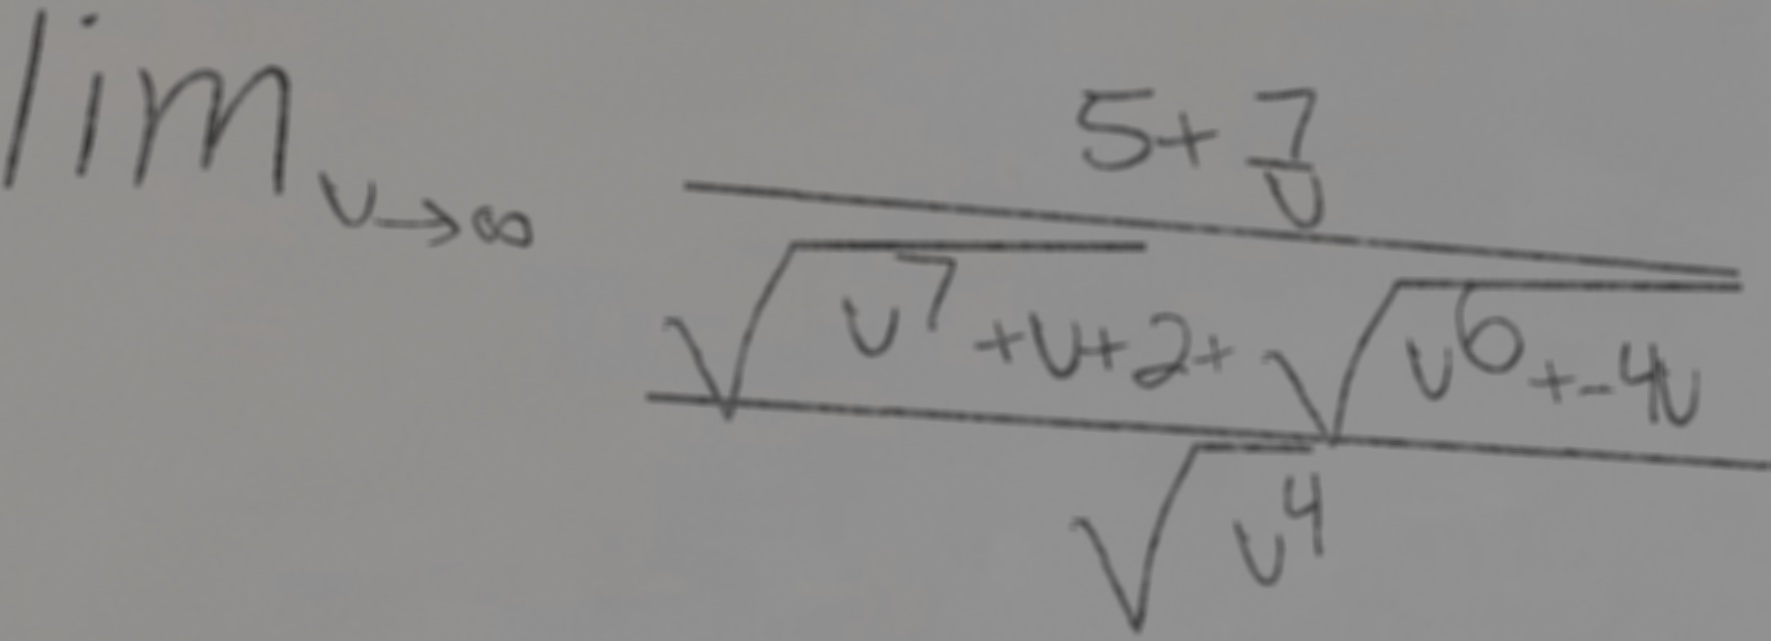 \lim_{v \to \infty} \frac{5 + \frac{7}{v}}{\frac{\sqrt{v^7 + v + 2} + \sqrt{v^6 + -4v}}{\sqrt{v^4}}}